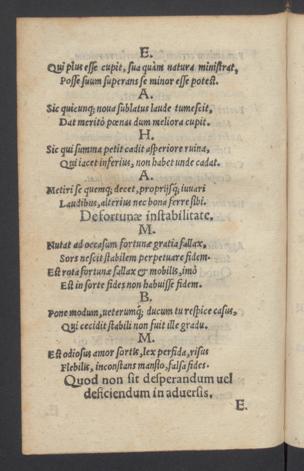 E.
Qui plus esse cupit, sua quàm natura ministrat,
Posse suum superans se minor esse potest.
A.
Sic quicunq; noua sublatus laude tumescit,
Dat meritò pœnas dum meliora cupit.
H.
Sic qui summa petit cadit asperiore ruina,
Qui iacet inferius, non habet unde cadat.
A.
Metiri se quemq; decet, proprijsq; iuuari
Laudibus, alterius nec bona ferre sibi.
De fortunæ instabilitate.
M.
Nutat ad occasum fortunæ gratia fallax,
Sors nescit stabilem perpetuare fidem.
Est rota fortunæ fallax & mobilis, imò
Est in sorte fides non habuisse fidem.
B.
Pone modum, ueterumq; ducum tu respice casus,
Qui cecidit stabili non fuit ille gradu.
M.
Est odiosus amor sortis, lex perfida, risus
Flebilis, inconstans mansio, falsa fides.
Quod non sit desperandum uel
deficiendum in aduersis.
E.